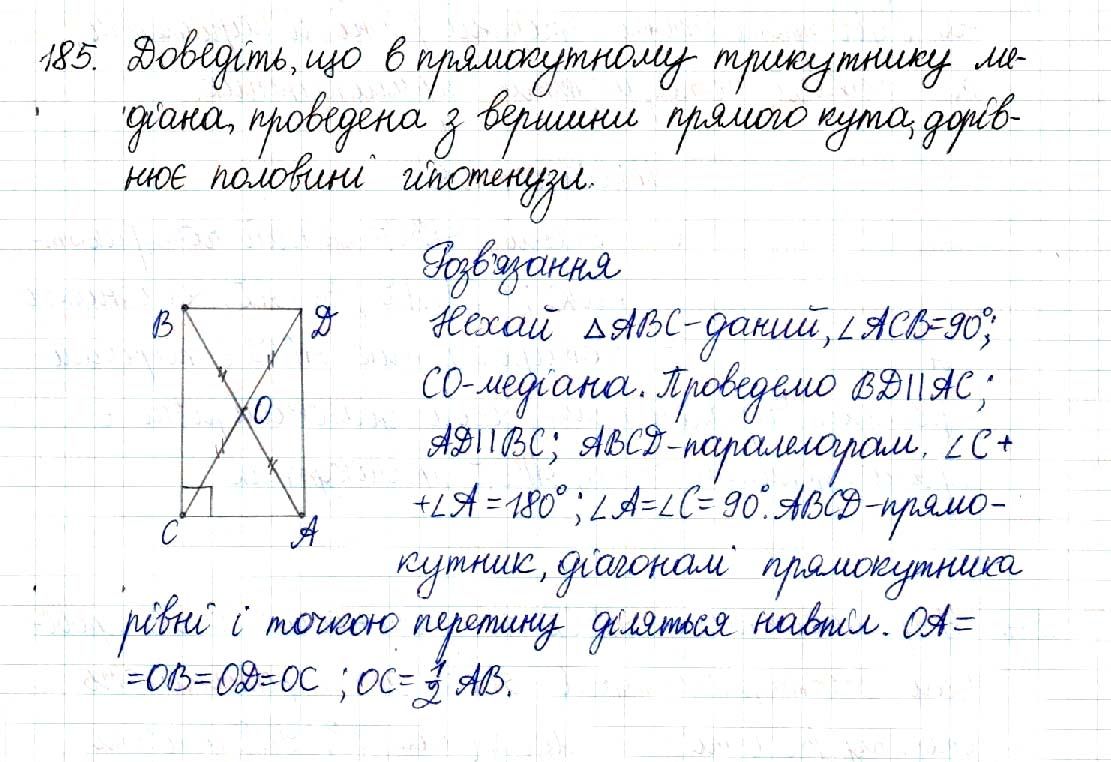 185. Доведіть, що в прямокутному трикутнику ме-
діана, проведена з вершини прямого кута, дорів-
нює половині гіпотенузи.
Розв'язання
B
D
Нехай △ABC-даний, ∠ACB=90°;
CO-медіана. Проведемо BD||AC;
O
AD||BC; ABCD-паралелограм. ∠C+
+∠A=180°; ∠A=∠C=90°. ABCD-прямо-
C
A
кутник, діагоналі прямокутника
рівні і точкою перетину діляться навпіл. OA=
=OB=OD=OC ; OC=1/2 AB.